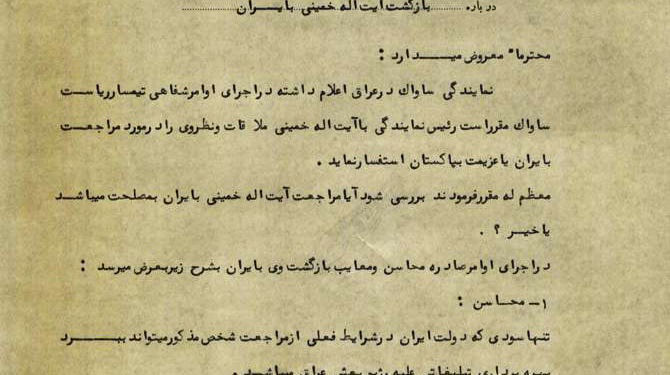 درباره ........ بازگشت آیت اله خمینی بایران ........
محترما" معروض میدارد :
نمایندگی ساواک در عراق اعلام داشته در اجرای اوامر شفاهی تیمسار ریاست
ساواک مقرر است رئیس نمایندگی با آیت اله خمینی ملاقات و نظر وی را در مورد مراجعت
بایران یا عزیمت بپاکستان استفسار نماید .
معظم له مقرر فرمودند بررسی شود آیا مراجعت آیت اله خمینی بایران بمصلحت میباشد
یا خیر ؟ .
در اجرای اوامر صادره محاسن و معایب بازگشت وی بایران بشرح زیر بعرض میرسد :
۱- محاسن :
تنها سودی که دولت ایران در شرایط فعلی از مراجعت شخص مذکور میتواند ببرد
بهره برداری تبلیغاتی علیه رژیم بعثی عراق میباشد .